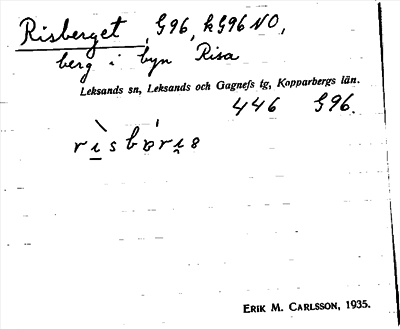 Risberget, G96, kG96 NO,
berg i byn Risa
Leksands sn, Leksands och Gagnefs tg, Kopparbergs län.
446 G96.
ERIK M. CARLSSON, 1935.